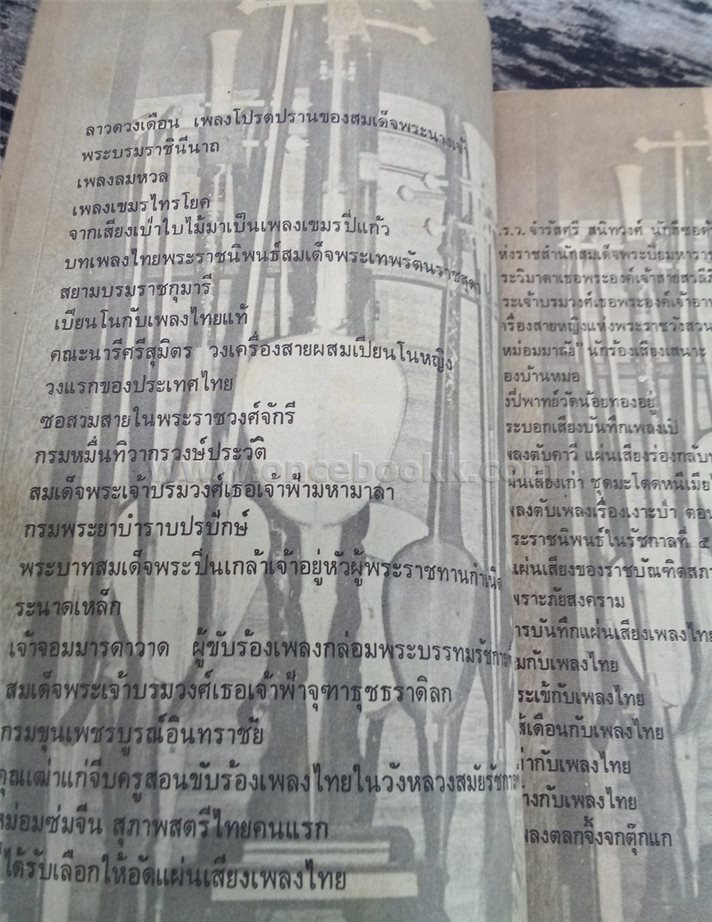 ลาวดวงเดือน เพลงโปรดปรานของสมเด็จพระนางเจ้า
พระบรมราชินีนาถ
เพลงลมหวล
เพลงเขมรไทรโยค
จากเสียงเป่าใบไม้มาเป็นเพลงเขมรปี่แก้ว
บทเพลงไทยพระราชนิพนธ์สมเด็จพระเทพรัตนราชสุดา
สยามบรมราชกุมารี
เปียนโนกับเพลงไทยแท้
คณะนารีศรีสุมิตร วงเครื่องสายผสมเปียนโนหญิง
วงแรกของประเทศไทย
ซอสามสายในพระราชวงศ์จักรี
กรมหมื่นทิวากรวงษ์ประวัติ
สมเด็จพระเจ้าบรมวงศ์เธอเจ้าฟ้ามหามาลา
กรมพระยาบำราบปรปักษ์
พระบาทสมเด็จพระปิ่นเกล้าเจ้าอยู่หัวผู้พระราชทานกำเนิด
ระนาดเหล็ก
เจ้าจอมมารดาวาด ผู้ขับร้องเพลงกล่อมพระบรรทมรัชกาลที่
สมเด็จพระเจ้าบรมวงศ์เธอเจ้าฟ้าจุฑาธุชธราดิลก
กรมขุนเพชรบูรณ์อินทราชัย
คุณเฒ่าแก่จีบครูสอนขับร้องเพลงไทยในวังหลวงสมัยรัชกาล
หม่อมซ่มจีน สุภาพสตรีไทยคนแรก
ที่ได้รับเลือกให้อัดแผ่นเสียงเพลงไทย
.ร.ว. จำรัสศรี สนิทวงศ์ นักสีซอ
ห่งราชสำนักสมเด็จพระปิยมหารา
ระวิมาดาเธอพระองค์เจ้าสายสวลีภิ
ระเจ้าบรมวงศ์เธอพระองค์เจ้าอา
รื่องสายหญิงแห่งพระราชวังสวน
หม่อมมาลัง" นักร้องเสียงเสนาะ
องบ้านหมอ
งปี่พาทย์วัดน้อยทองอยู่
ระบอกเสียงบันทึกเพลงเป็
พลงตับคาวี แผ่นเสียงร่องกลับ
ผ่นเสียงเก่า ชุดมะโดดหนีเมีย
พลงตับเพลงเรื่องเงาะป่า ตอน
ระราชนิพนธ์ในรัชกาลที่ ๕
แผ่นเสียงของราชบัณฑิตสภา
พราะภัยสงคราม
ารบันทึกแผ่นเสียงเพลงไทย
มกับเพลงไทย
ระเข้กับเพลงไทย
ส้เดือนกับเพลงไทย
ต่ากับเพลงไทย
้างกับเพลงไทย
พลงตลกจิ้งจกตุ๊กแก
www.oncebookk.com